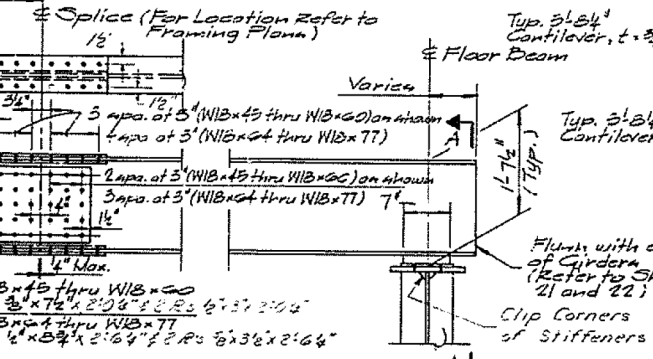 ℄ Splice (For Location Refer to
Framing Plans)
Typ. 3'-8¼"
Cantilever, t =
℄ Floor Beam
1½"
Varies
1½"
3/4"
3 spa. at 3" (W18×45 thru W18×60) as shown
4 spa. at 3" (W18×64 thru W18×77)
A
Typ. 3'-8¼"
Cantilever
1'-7½"
(Typ.)
2 spa. at 3" (W18×45 thru W18×60) as shown
3 spa. at 3" (W18×64 thru W18×77)
7"
4"
1½"
¼" Max.
Flush with
of Girders
(Refer to
21 and 22)
8×45 thru W18×60
8×64 thru W18×77
Clip Corners
of Stiffeners